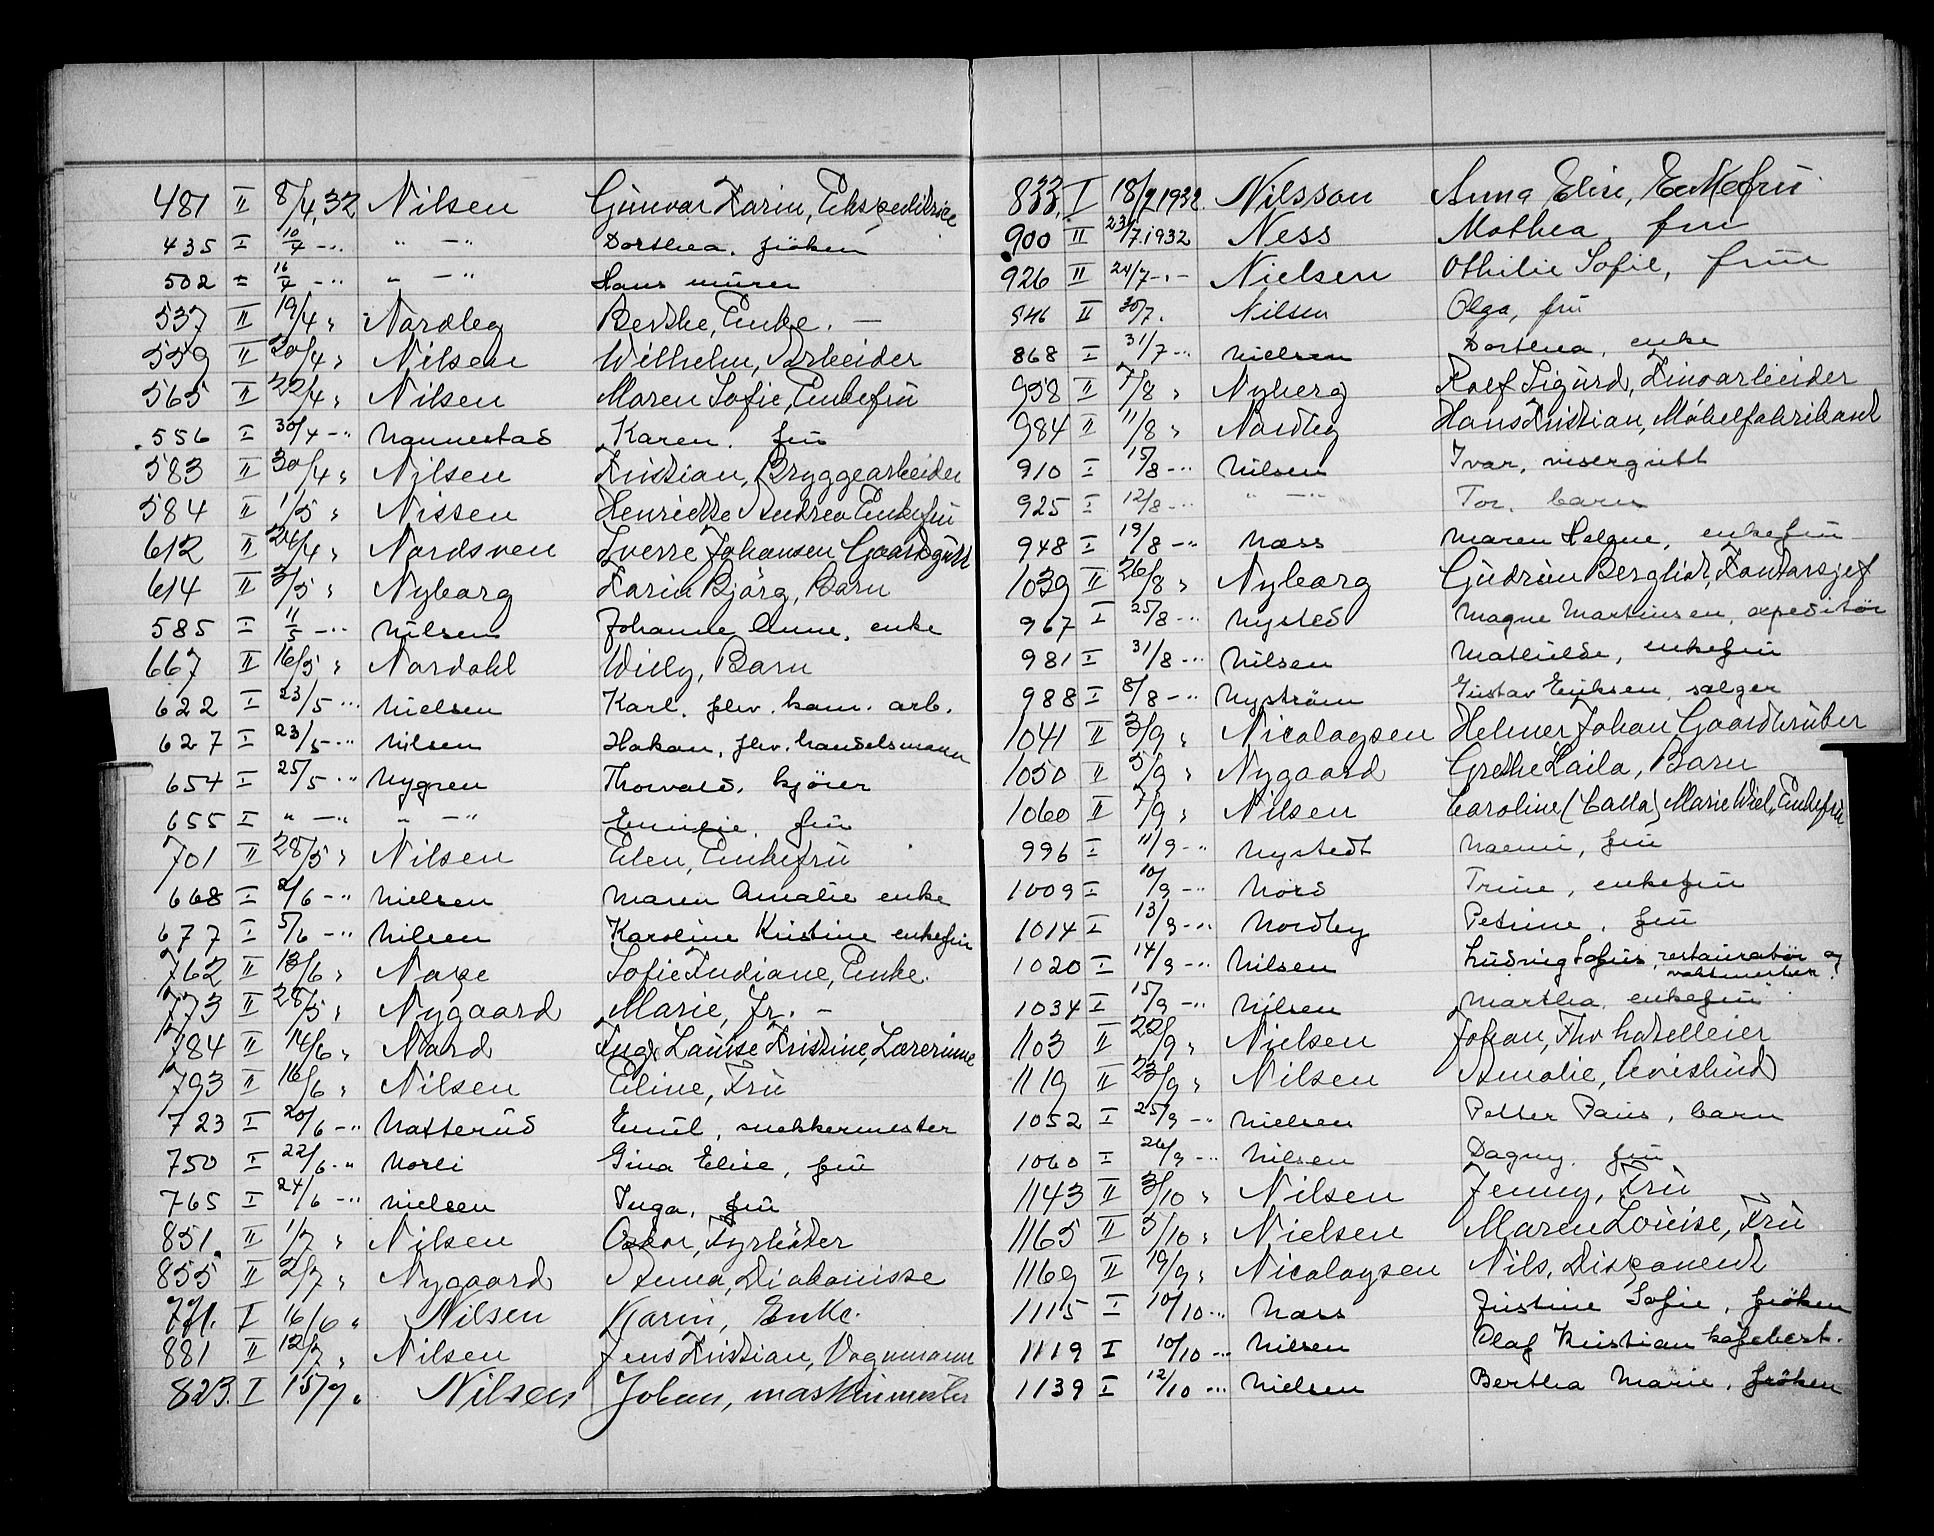 481 II 8/4 32 Nilsen Gunvor Karin, Ekspeditrice
435 I 10/4 -"- " -"- Dorthea, frøken
502 I 16/4 -"- " -"- Hans murer
537 II 19/4 " Nordley Berthe, Enke. —
559 II 20/4 " Nilsen Wilhelm, Arbeider
565 II 22/4 " Nilsen Maren Sofie, Enkefru
556 I 30/4 -"- Nannestad Karen, fru
583 II 30/4 " Nilsen Kristian, Bryggearbeider
584 II 1/5 " Nissen Henriette Andrea Enkefru
612 II 24/4 " Nordsven Sverre Johansen Gaardgutt
614 II 3/5 " Nyborg Karin Bjørg, Barn
585 I 11/5 -"- Nilsen Johanne Anne, enke
667 II 16/5 " Nordahl Willy, Barn
622 I 23/5 -"- Nielsen Karl, fhv. kom. arb.
627 I 23/5 -"- Nilsen Hakon, fhv. handelsmann
654 I 25/5 -"- Nygren Thorvald, kjører
655 I " -"- " -"- Emilie, fru
701 II 28/5 " Nilsen Elen, Enkefru
668 I 2/6 -"- Nielsen Maren Amalie enke
677 I 5/6 -"- Nilsen Karoline Kristine enkefru
762 II 13/6 " Sofie Indiane, Enke.
773 II 28/5 " Nygaard Marie, Fr. —
784 II 14/6 " Nord Inga Louise Kristine, Lærerinne
793 II 16/6 " Nilsen Eline, Fru
723 I 20/6 -"- Natterud Emil, snekkermester
750 I 22/6 -"- Norli Gina Elise, fru
765 I 24/6 -"- Nielsen Inga, fru
851 II 1/7 " Nilsen Oskar, Fyrbøter
855 II 2/7 " Nygaard Anna, Diakonisse
771. I 16/6 " Nilsen Karin, Enke.
881 II 12/7 " Nilsen Jens Kristian, Vognmann
823. I 15/7 " Nilsen Johan, maskinmester
833. I 18/7 1932. Nilsson Anna Elise, Enkefru
900 II 23/7.1932 Ness Mathea fru
926 II 24/7 -"- Nielsen Othilie Sofie, frue
946 II 30/7. Nilsen Olga, fru
868 I 31/7 -"- Nielsen Dorthea, enke
958 II 7/8 " Nyberg Rolf Sigurd, Kinoarbeider
984 II 11/8 " Nordby Hans Kristian, Møbelfabrikant
910 I 15/8 -"- Nilsen Ivar, visergutt
925 I 12/8 -"- " -"- Tor, barn
948 I 19/8 -"- Næss Maren Helene, enkefru
1039 II 26/8 " Nyborg Gudrun Bergliot, Kontorsjef
967 I 25/8 -"- Nysted Magne Martinsen, expeditør
981 I 31/8 -"- Nilsen Mathilde, enkefru
988 I 8/8 -"- Nystrøm Gustav Eriksen, sælger
1041 II 3/9 " Nicolaysen Helmer Johan Gaardbruker
1050 II 5/9 " Nygaard Grethe Laila, Barn
1060 II 7/9 " Nilsen Caroline (Calla) Marie Wiel, Enkefru
996 I 11/9 -"- Nystedt Naemi, fru
1009 I 10/9 -"- Nord Trine, enkefru
1014 I 13/9 -"- Nordby Petrine, fru
1020 I 14/9 -"- Nilsen Ludvig Sofus, restauratør og vaktmester.
1034 I 15/9 -"- Nilsen Martha, enkefru
1103 II 22/9 " Nielsen Johan, Fhv hotelleier
1119 II 23/9 " Nilsen Amalie, Avisbud
1052 I 25/9 -"- Nielsen Petter Paus, barn
1060 I 26/9 -"- Nilsen Dagny, fru
1143 II 3/10 " Nilsen Jenny, Fru
1165 II 5/10 " Nielsen Maren Louise, Fru
1169 II 19/9 " Nicolaysen Nils, Disponent
1115 I 10/10 -"- Næss Justine Sofie, frøken
1119 I 10/10 -"- Nilsen Olaf Kristian
1139 I 12/10 -"- Nielsen Bertha Marie, frøken